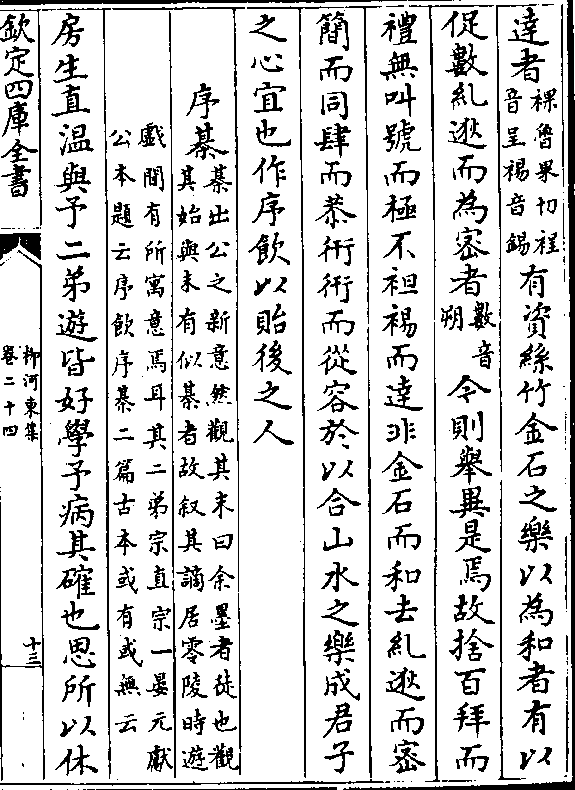 達者裸魯果切裎音呈裼音錫有資絲竹金石之樂以為和者有以
促數糺逖而為密者數音朔今則舉異是焉故捨百拜而
禮無叫號而極不袒裼而達非金石而和去糺逖而密
簡而同肆而恭衎衎而從容於以合山水之樂成君子
之心宜也作序飲以貽後之人
序棊棊出公之新意然觀其末曰余墨者徒也觀其始與末有似棊者故叙其謫居零陵時遊
戲間有所寓意焉耳其二弟宗直宗一晏元獻公本題云序飲序棊二篇古本或有或無云
房生直温與予二弟遊皆好學予病其確也思所以休
欽定四庫全書
柳河東集
卷二十四
十三